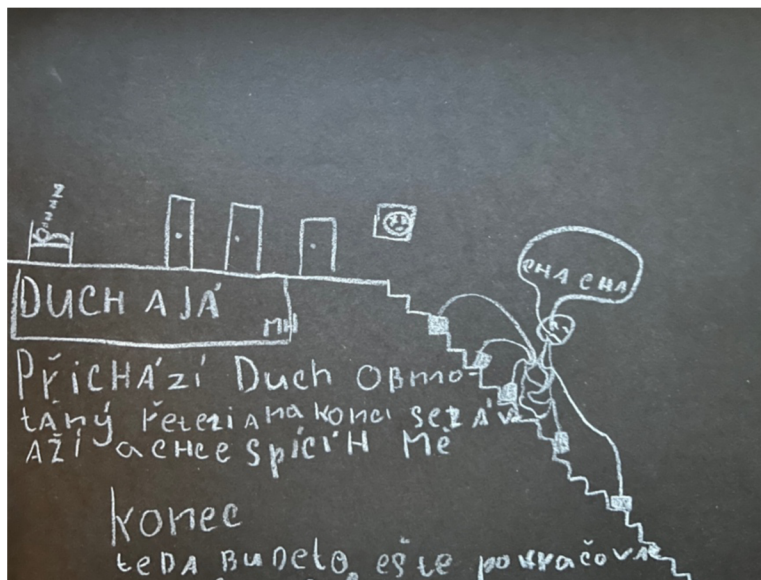 CHA CHA
DUCH A JÁ
MH
PŘiCHÁZí Duch OBmo-
tÁný ŘeteziAna konci se zÁV
AŽÍ a CHce SpÍCÍH MĚ
konec
teDA BuDeto eště pokračovat